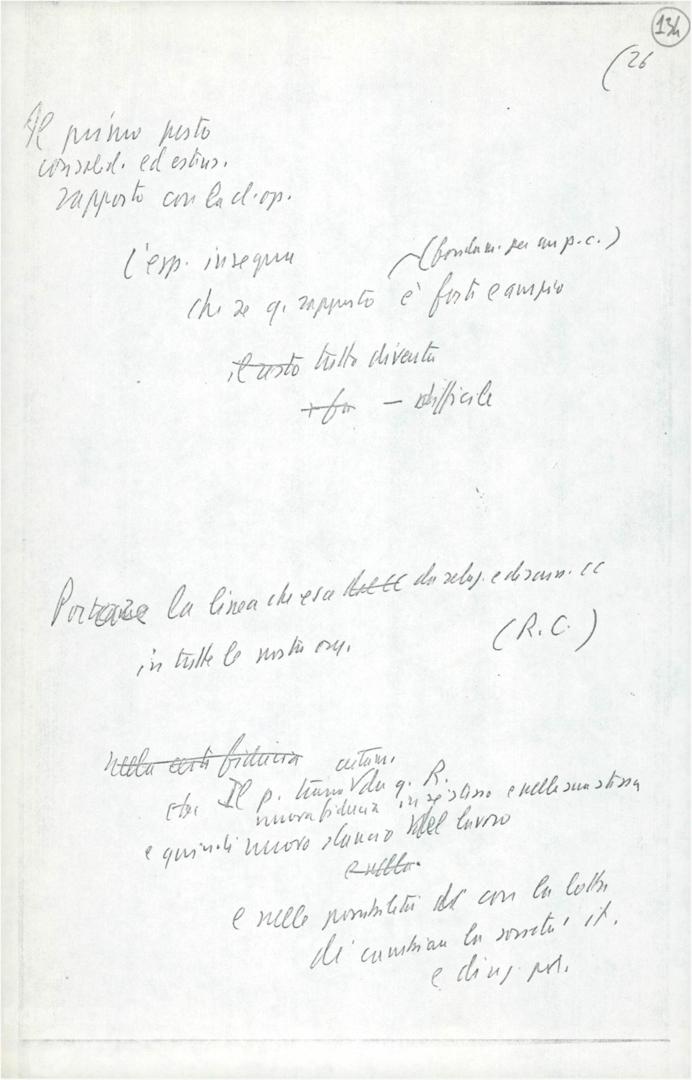 134
(26
Il primo posto
consolid. ed estens.
rapporto con la cl. op.
L'esp. insegna
(fondam. per un p.c.)
che se q. rapporto è forte e ampio
il resto tutto diventa
- difficile
Portare la linea che esce da e discuss. CC
in tutte le nostre org.
(R.C.)
nella certi fiducia
che Il p. da q. R.
nuova fiducia in se stesso e nella sua stessa
e quindi nuovo slancio nel lavoro
e nella
e nelle possibilità con la lotta
di cambiare la società it.
e